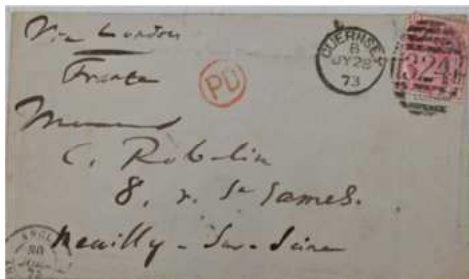 Via London
France
GUERNSEY
B
JY 28
73
324
PD
C. Robelin
8, r. St James.
Neuilly - Sur - Seine
ANGL